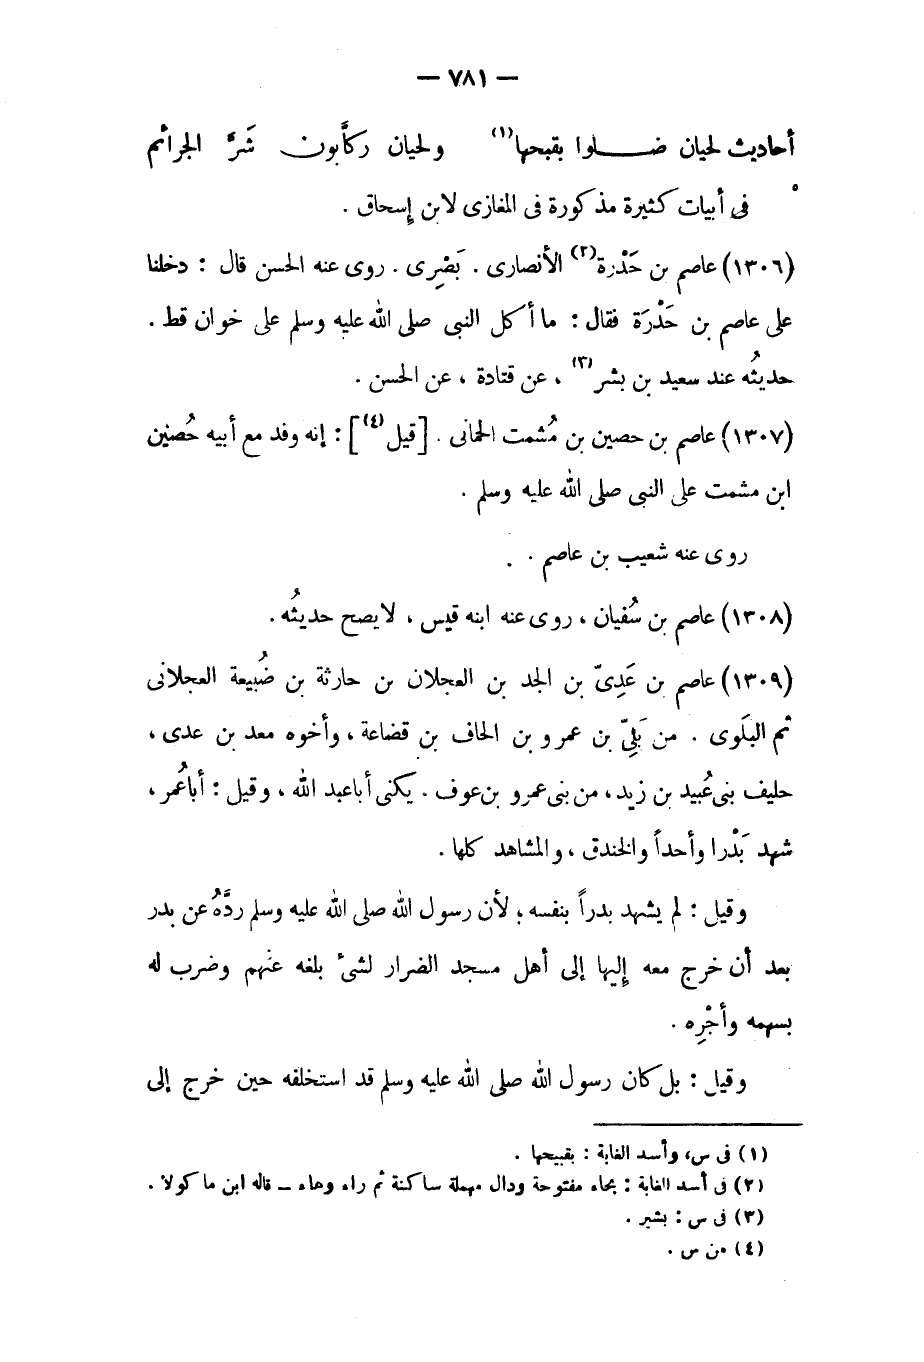 — ٧٨١ —
أحاديث لحيان ضـــــلوا بقبحها(١) ولحيان ركَّابون شَرَّ الجرائم
فى أبيات كثيرة مذكورة فى المغازى لابن إسحاق .
(١٣٠٦) عاصم بن حَدْرة(٢) الأنصارى . بَصْرِى . روى عنه الحسن قال : دخلنا
على عاصم بن حَدْرَة فقال : ما أكل النبى صلى الله عليه وسلم على خوان قط .
حديثُه عند سعيد بن بشر(٣) ، عن قتادة ، عن الحسن .
(١٣٠٧) عاصم بن حصين بن مُشمت الحمانى . [قيل(٤)] : إنه وفد مع أبيه حُصنين
ابن مشمت على النبى صلى الله عليه وسلم .
روى عنه شعيب بن عاصم .
(١٣٠٨) عاصم بن سُفيان ، روى عنه ابنه قيس ، لايصح حديثُه .
(١٣٠٩) عاصم بن عَدِىّ بن الجد بن العجلان بن حارثة بن ضُبيعة العجلانى
ثم البَلَوى . من بَلِىّ بن عمرو بن الحاف بن قضاعة ، وأخوه معد بن عدى ،
حليف بنى عُبيد بن زيد ، من بنى عمرو بن عوف . يكنى أبا عبد الله ، وقيل : أبا عُمر ،
شهد بَدْرا وأحداً والخندق ، والمشاهد كلها .
وقيل : لم يشهد بدراً بنفسه ؛ لأن رسول الله صلى الله عليه وسلم ردَّهُ عن بدر
بعد أن خرج معه إليها إلى أهل مسجد الضرار لشىء بلغه عنهم وضرب له
بسهمه وأجْرِه .
وقيل : بل كان رسول الله صلى الله عليه وسلم قد استخلفه حين خرج إلى
(١) فى س، وأسد الغابة : بقبيحها .
(٢) فى أسد الغابة : بحاء مفتوحة ودال مهملة ساكنة ثم راء وهاء – قاله ابن ماكولا .
(٣) فى س : بشير .
(٤) من س .